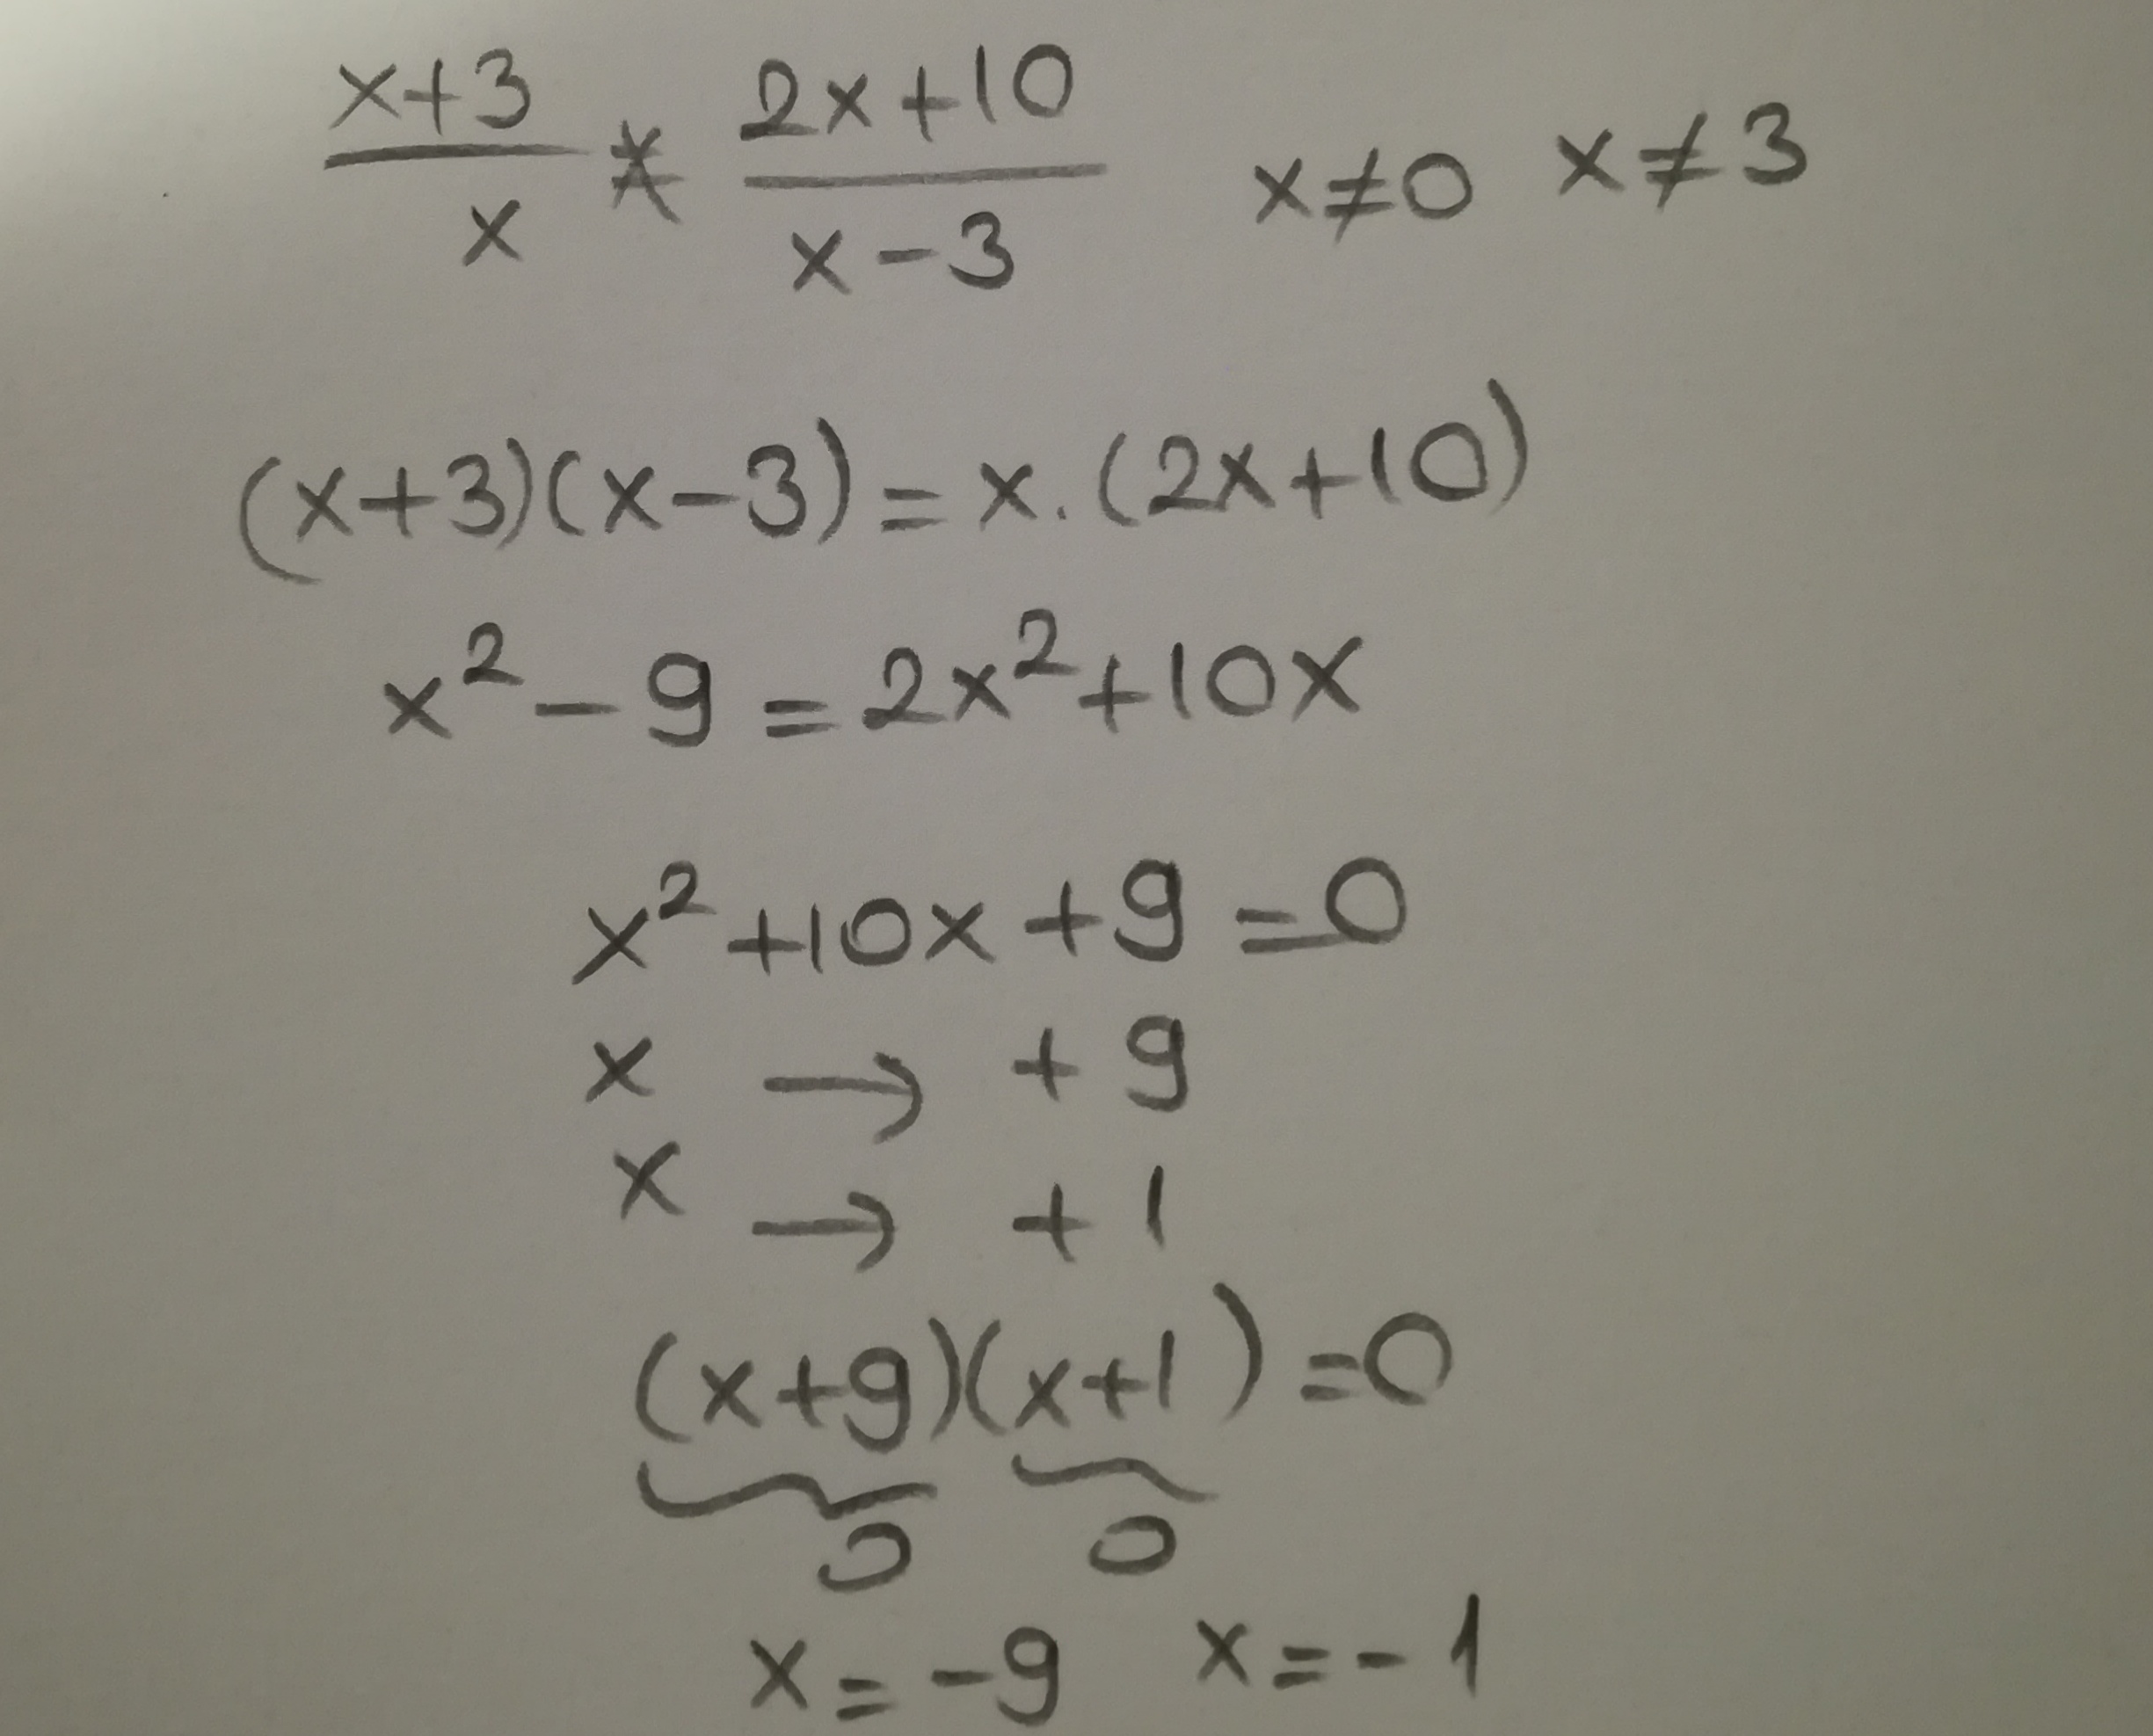 x+3/x = 2x+10/x-3 x≠0 x≠3
(x+3)(x-3)=x.(2x+10)
x²-9=2x²+10x
x²+10x+9=0
x → +9
x → +1
(x+9)(x+1)=0
0 0
x=-9 x=-1